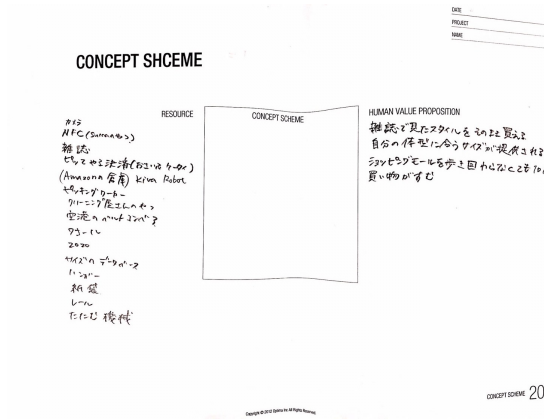 DATE
PROJECT
NAME
CONCEPT SHCEME
RESOURCE
カメラ
NFC
雑誌
ピッてやる決済(おさいふケータイ)
(Amazonの倉庫) Kiva Robot
ピッキングワーカー
クリーニング屋さんのやつ
空港のベルトコンベア
ZOZO
サイズのデータベース
ハンガー
紙袋
レール
たたむ機械
CONCEPT SCHEME
HUMAN VALUE PROPOSITION
雑誌で見たスタイルをそのまま買える
自分の体型に合うサイズが提供される
ショッピングモールを歩き回らなくても
買い物がすむ
CONCEPT SCHEME 20
Copyright © 2012 Inc All Rights Reserved.